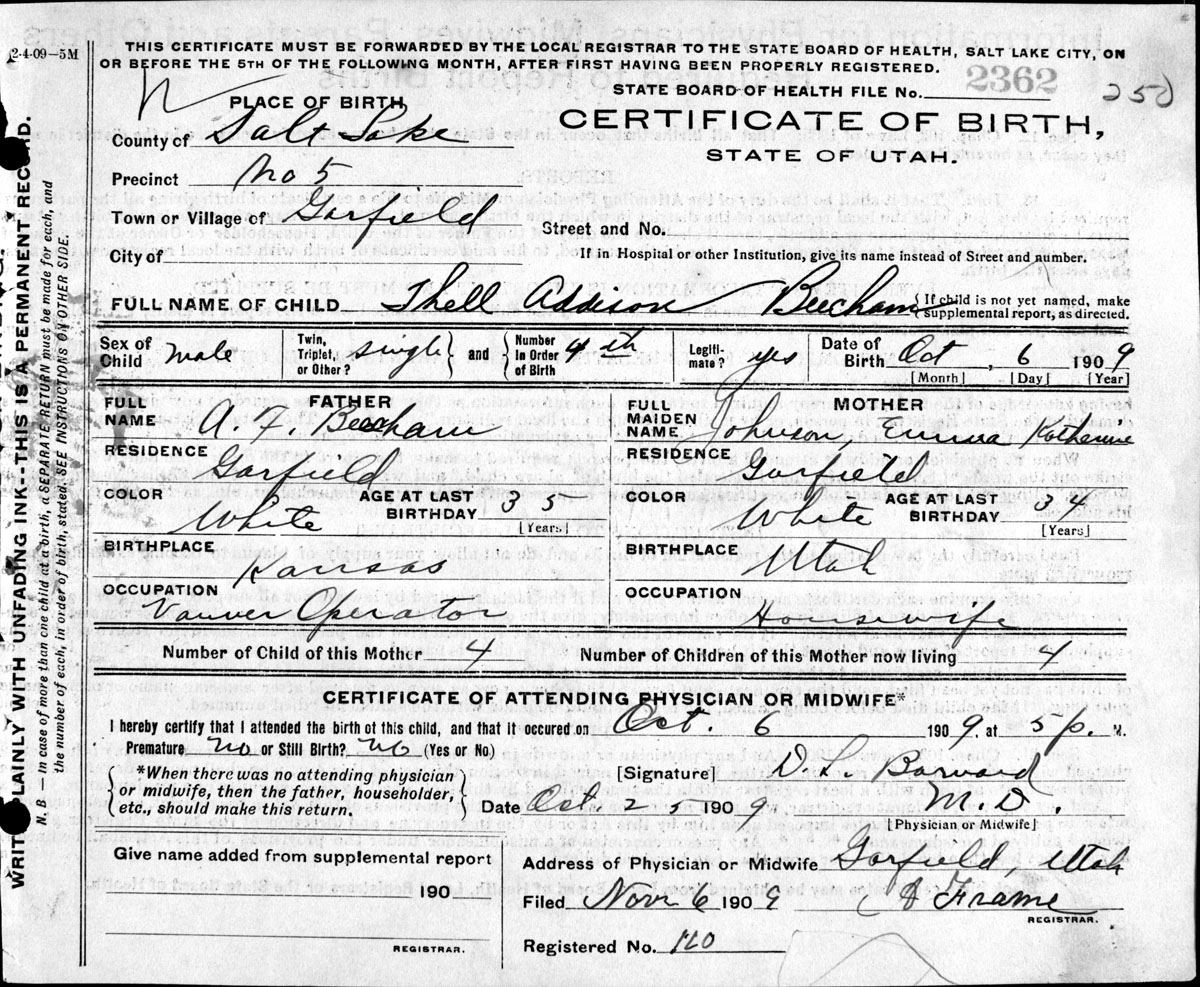 2-4-09—5M
THIS CERTIFICATE MUST BE FORWARDED BY THE LOCAL REGISTRAR TO THE STATE BOARD OF HEALTH, SALT LAKE CITY, ON
OR BEFORE THE 5TH OF THE FOLLOWING MONTH, AFTER FIRST HAVING BEEN PROPERLY REGISTERED.
STATE BOARD OF HEALTH FILE No. 2362
250
PLACE OF BIRTH
CERTIFICATE OF BIRTH,
STATE OF UTAH.
County of Salt Lake
Precinct No 5
Town or Village of Garfield
Street and No.
City of
If in Hospital or other Institution, give its name instead of Street and number.
FULL NAME OF CHILD Thell Addison Beecham
If child is not yet named, make
supplemental report, as directed.
Sex of
Child male
Twin,
Triplet,
or Other? single
and
Number
in Order
of Birth 4th
Legiti-
mate? yes
Date of
Birth Oct, 6 1909
[Month] [Day] [Year]
FATHER
FULL
NAME A. F. Beecham
RESIDENCE
Garfield
COLOR
White
AGE AT LAST
BIRTHDAY 35
[Years]
BIRTHPLACE
Kansas
OCCUPATION
Operator
MOTHER
FULL
MAIDEN
NAME Johnson Emma Katherine
RESIDENCE
Garfield
COLOR
White
AGE AT LAST
BIRTHDAY 34
[Years]
BIRTHPLACE
Utah
OCCUPATION
Housewife
Number of Child of this Mother 4
Number of Children of this Mother now living 4
CERTIFICATE OF ATTENDING PHYSICIAN OR MIDWIFE*
I hereby certify that I attended the birth of this child, and that it occured on Oct. 6 1909. at 5 p. M.
Premature no or Still Birth? no (Yes or No)
*When there was no attending physician
or midwife, then the father, householder,
etc., should make this return.
[Signature] D. L. Barnard
M.D.
[Physician or Midwife]
Date Oct 25 1909
Give name added from supplemental report
190
REGISTRAR.
Address of Physician or Midwife Garfield, Utah
Filed Nov 6 1909 Frame
REGISTRAR.
Registered No. 110
WRITE PLAINLY WITH UNFADING INK--THIS IS A PERMANENT RECORD.
N. B. — In case of more than one child at a birth, a SEPARATE RETURN must be made for each, and
the number of each, in order of birth, stated. SEE INSTRUCTIONS ON OTHER SIDE.